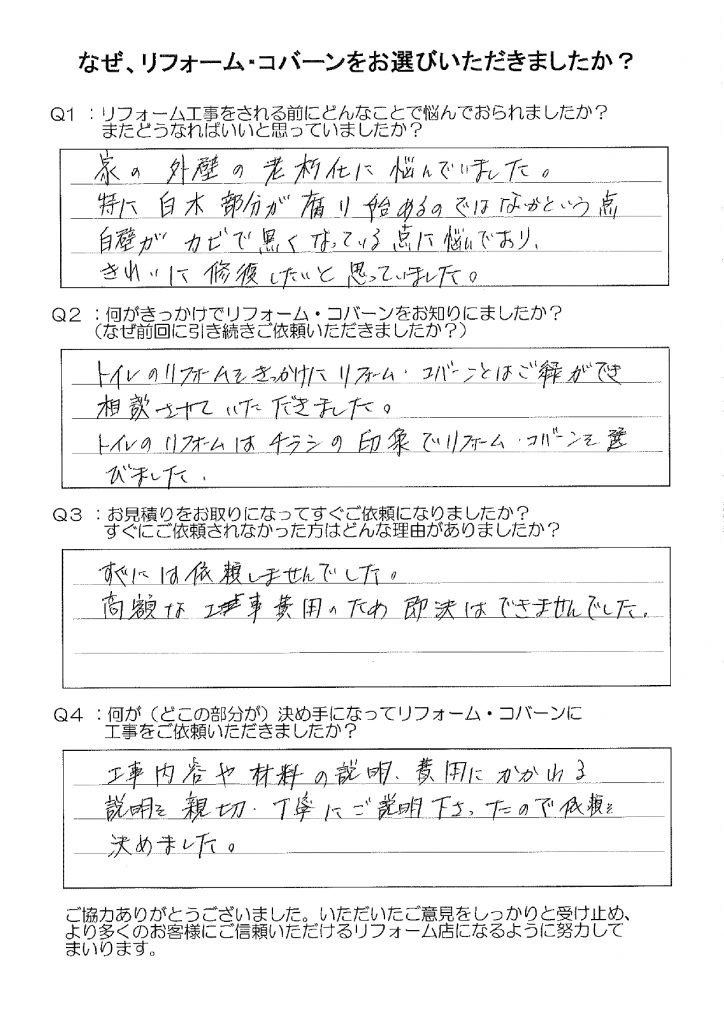 なぜ、リフォーム・コバーンをお選びいただきましたか？
Q1 ：リフォーム工事をされる前にどんなことで悩んでおられましたか？
またどうなればいいと思っていましたか？
家の外壁の老朽化に悩んでいました。
特に白木部分が腐り始めるのではなかという点
白壁がカビで黒くなっている点に悩んでおり、
きれいに修復したいと思っていました。
Q2 ：何がきっかけでリフォーム・コバーンをお知りにましたか？
（なぜ前回に引き続きご依頼いただきましたか？）
トイレのリフォームをきっかけにリフォーム・コバーンとはご縁ができ
相談させていただきました。
トイレのリフォームはチラシの印象でリフォーム・コバーンを選
びました。
Q3 ：お見積りをお取りになってすぐご依頼になりましたか？
すぐにご依頼されなかった方はどんな理由がありましたか？
すぐには依頼しませんでした。
高額な工事費用のため即決はできませんでした。
Q4 ：何が（どこの部分が）決め手になってリフォーム・コバーンに
工事をご依頼いただきましたか？
工事内容や材料の説明、費用にかかわる
説明を親切・丁寧にご説明下さったので依頼を
決めました。
ご協力ありがとうございました。いただいたご意見をしっかりと受け止め、
より多くのお客様にご信頼いただけるリフォーム店になるように努力して
まいります。